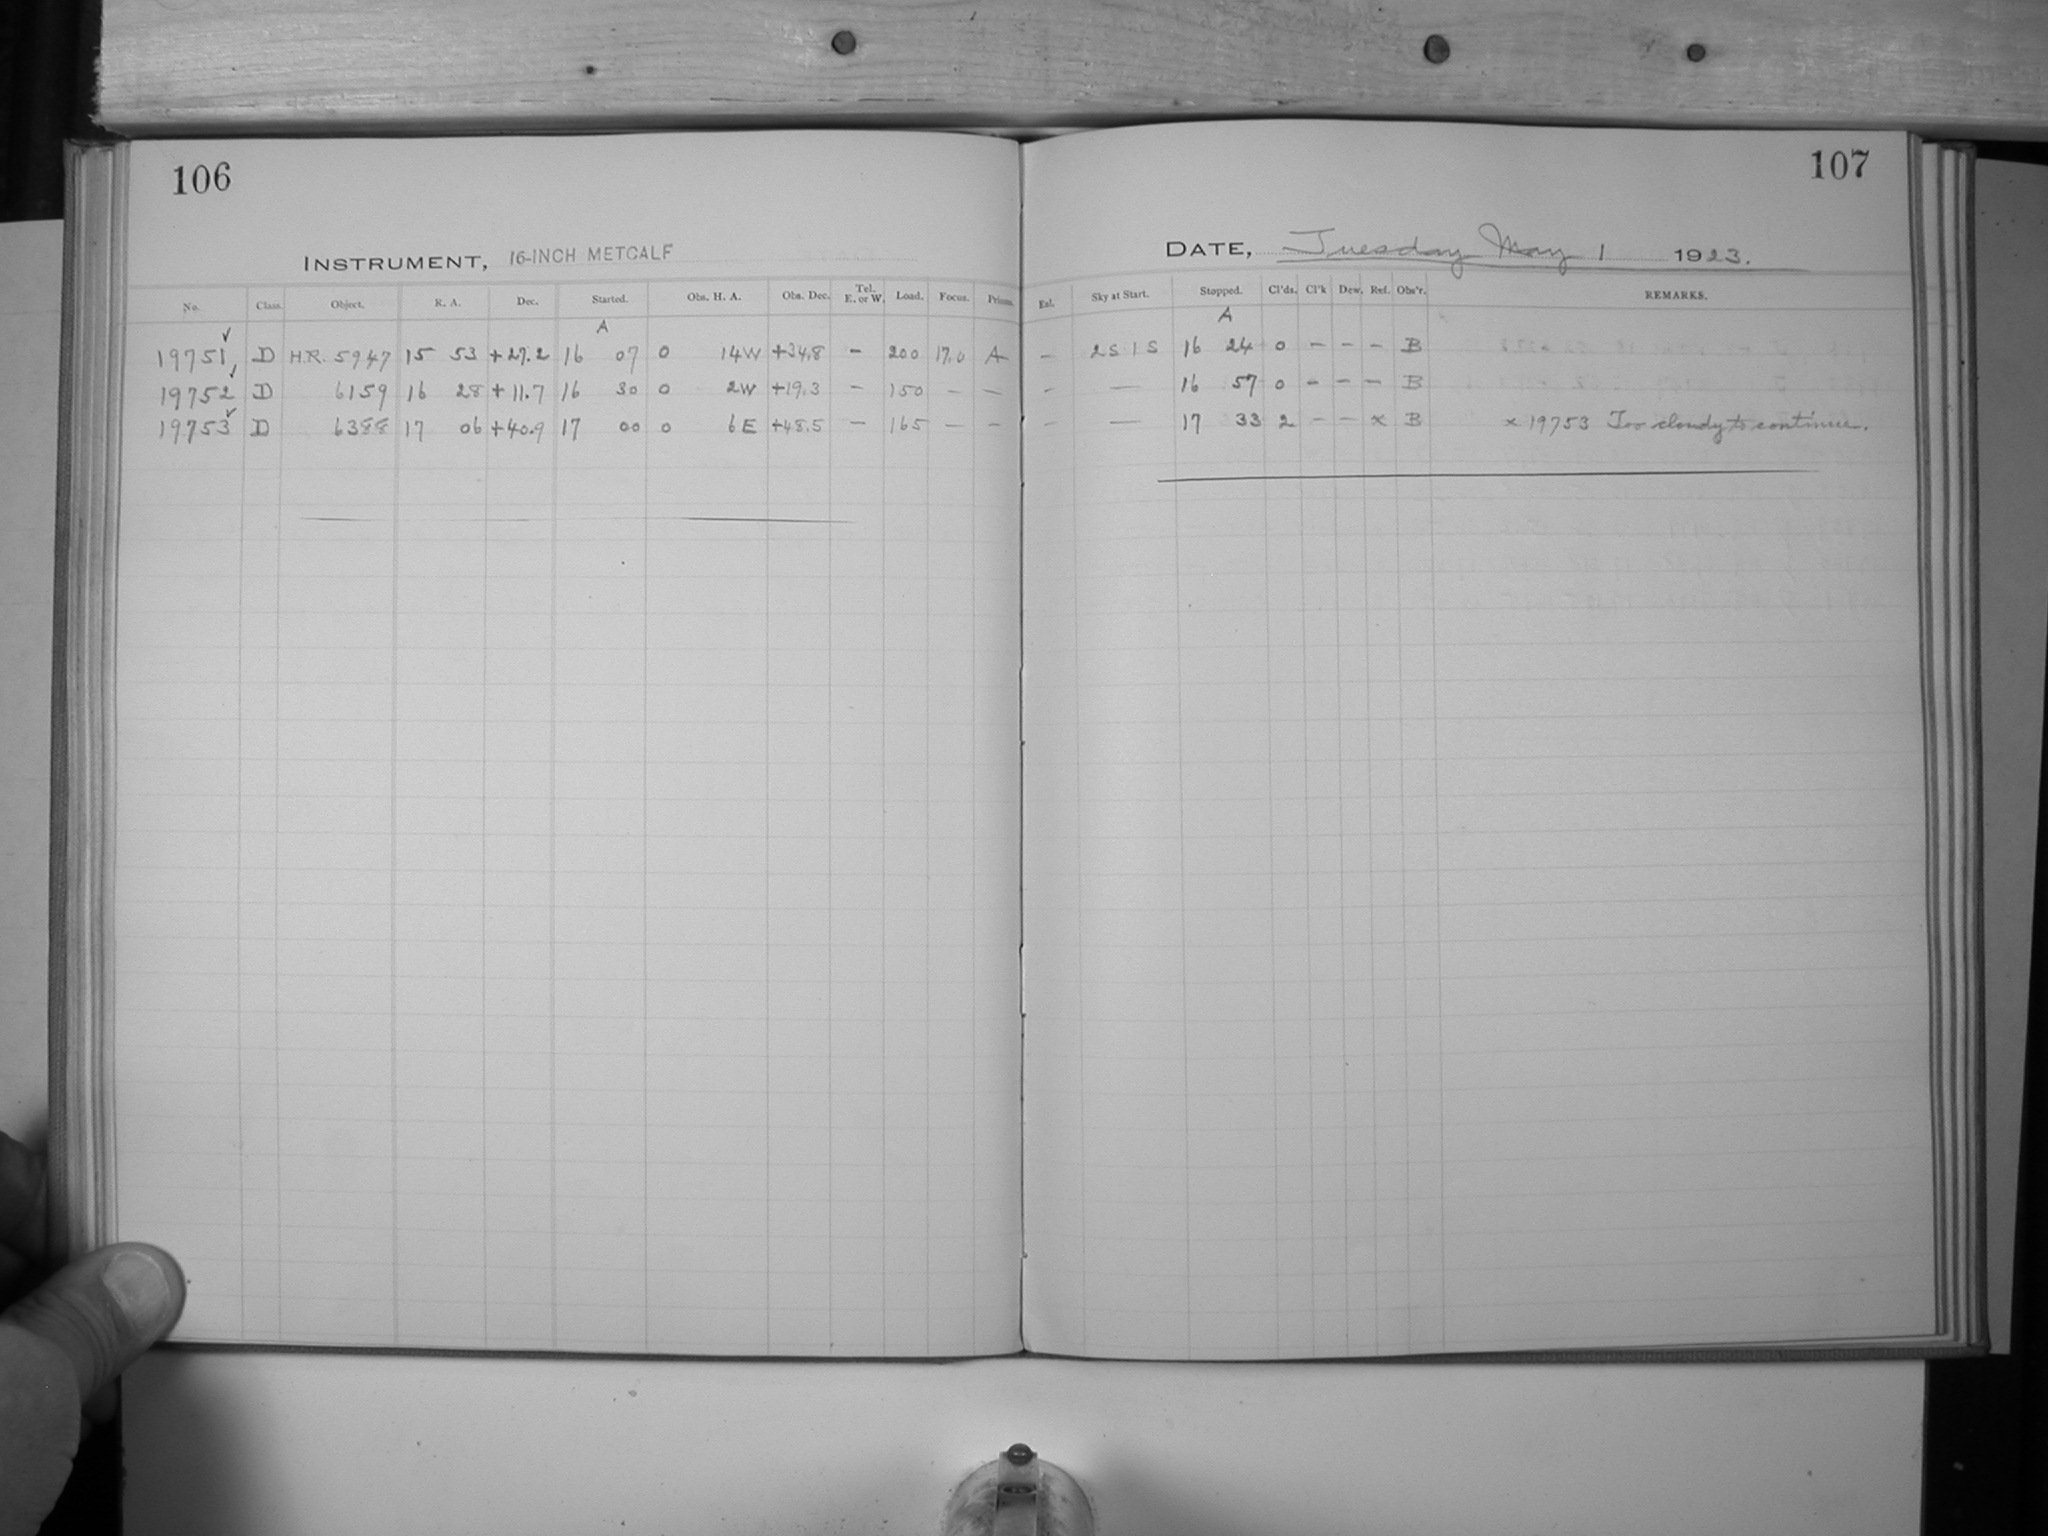 106
INSTRUMENT, 16-INCH METCALF
No. Class. Object. R. A. Dec. Started. Obs. H. A. Obs. Dec. Tel. E. or W. Load. Focus. Prism.
A
19751 ✓ D H.R. 5947 15 53 +27.2 16 07 0 14W +34.8 – 200 17.0 A
19752 ✓ D 6159 16 28 +11.7 16 30 0 2W +19.3 – 150 — —
19753 ✓ D 6388 17 06 +40.9 17 00 0 6E +48.5 – 165 – –
107
DATE, Tuesday May 1 1923.
Exl. Sky at Start. Stopped. Cl'ds. Cl'k Dew. Ref. Obs'r. REMARKS.
A
– 2S 1S 16 24 0 – – – B
– — 16 57 0 – – – B
– — 17 33 2 – – x B x 19753 Too cloudy to continue.